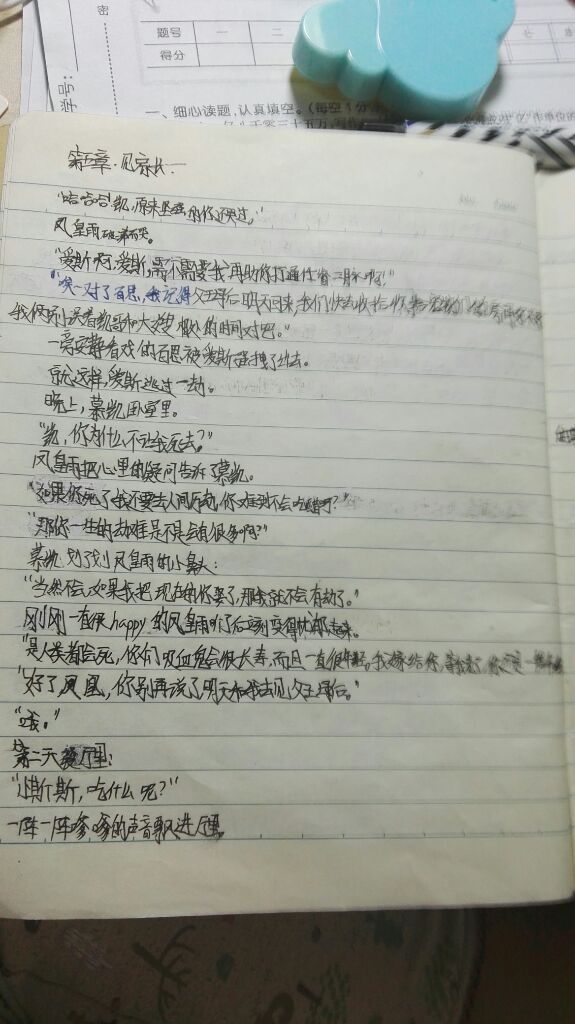 密
学号:
题号 一 二
得分
一、细心读题,认真填空。(每空1分
第五章·见家长
"哈哈哈!凯,原来坚强的你还哭过,"
凤皇雨破涕而笑。
"爱斯啊,爱斯,需不需要我再助你打通任督二脉啊!"
"唉~对了百思,我记得父王母后明天回来,我们快去收拾
我俩别误着凯哥和大嫂 的时间对吧。"
一旁安静看戏的百思被爱斯 拽了出去。
就这样,爱斯逃过一劫。
晚上,慕凯卧室里。
"凯,你为什么不让我死去?"
凤皇雨把心里的疑问告诉了慕凯。
"如果你死了我不要去人间历劫,你难到不会吃醋吗?"
"那你一生的劫难是不是会有很多啊?"
慕凯划了划凤皇雨的小鼻头:
"当然不会,如果我把现在的你娶了,那我就不会有劫了。"
刚刚一直很happy的凤皇雨听了后立刻变得忧郁起来。
"是人类着会死,你们吸血鬼会很长寿,而且一直很年轻。我嫁给你,
"好了凤凰,你别再说了明天和我去见父王母后。"
"哦。"
第二天 厅里:
"小斯斯,吃什么呢?"
一阵一阵嗲嗲的声音飘进厅里